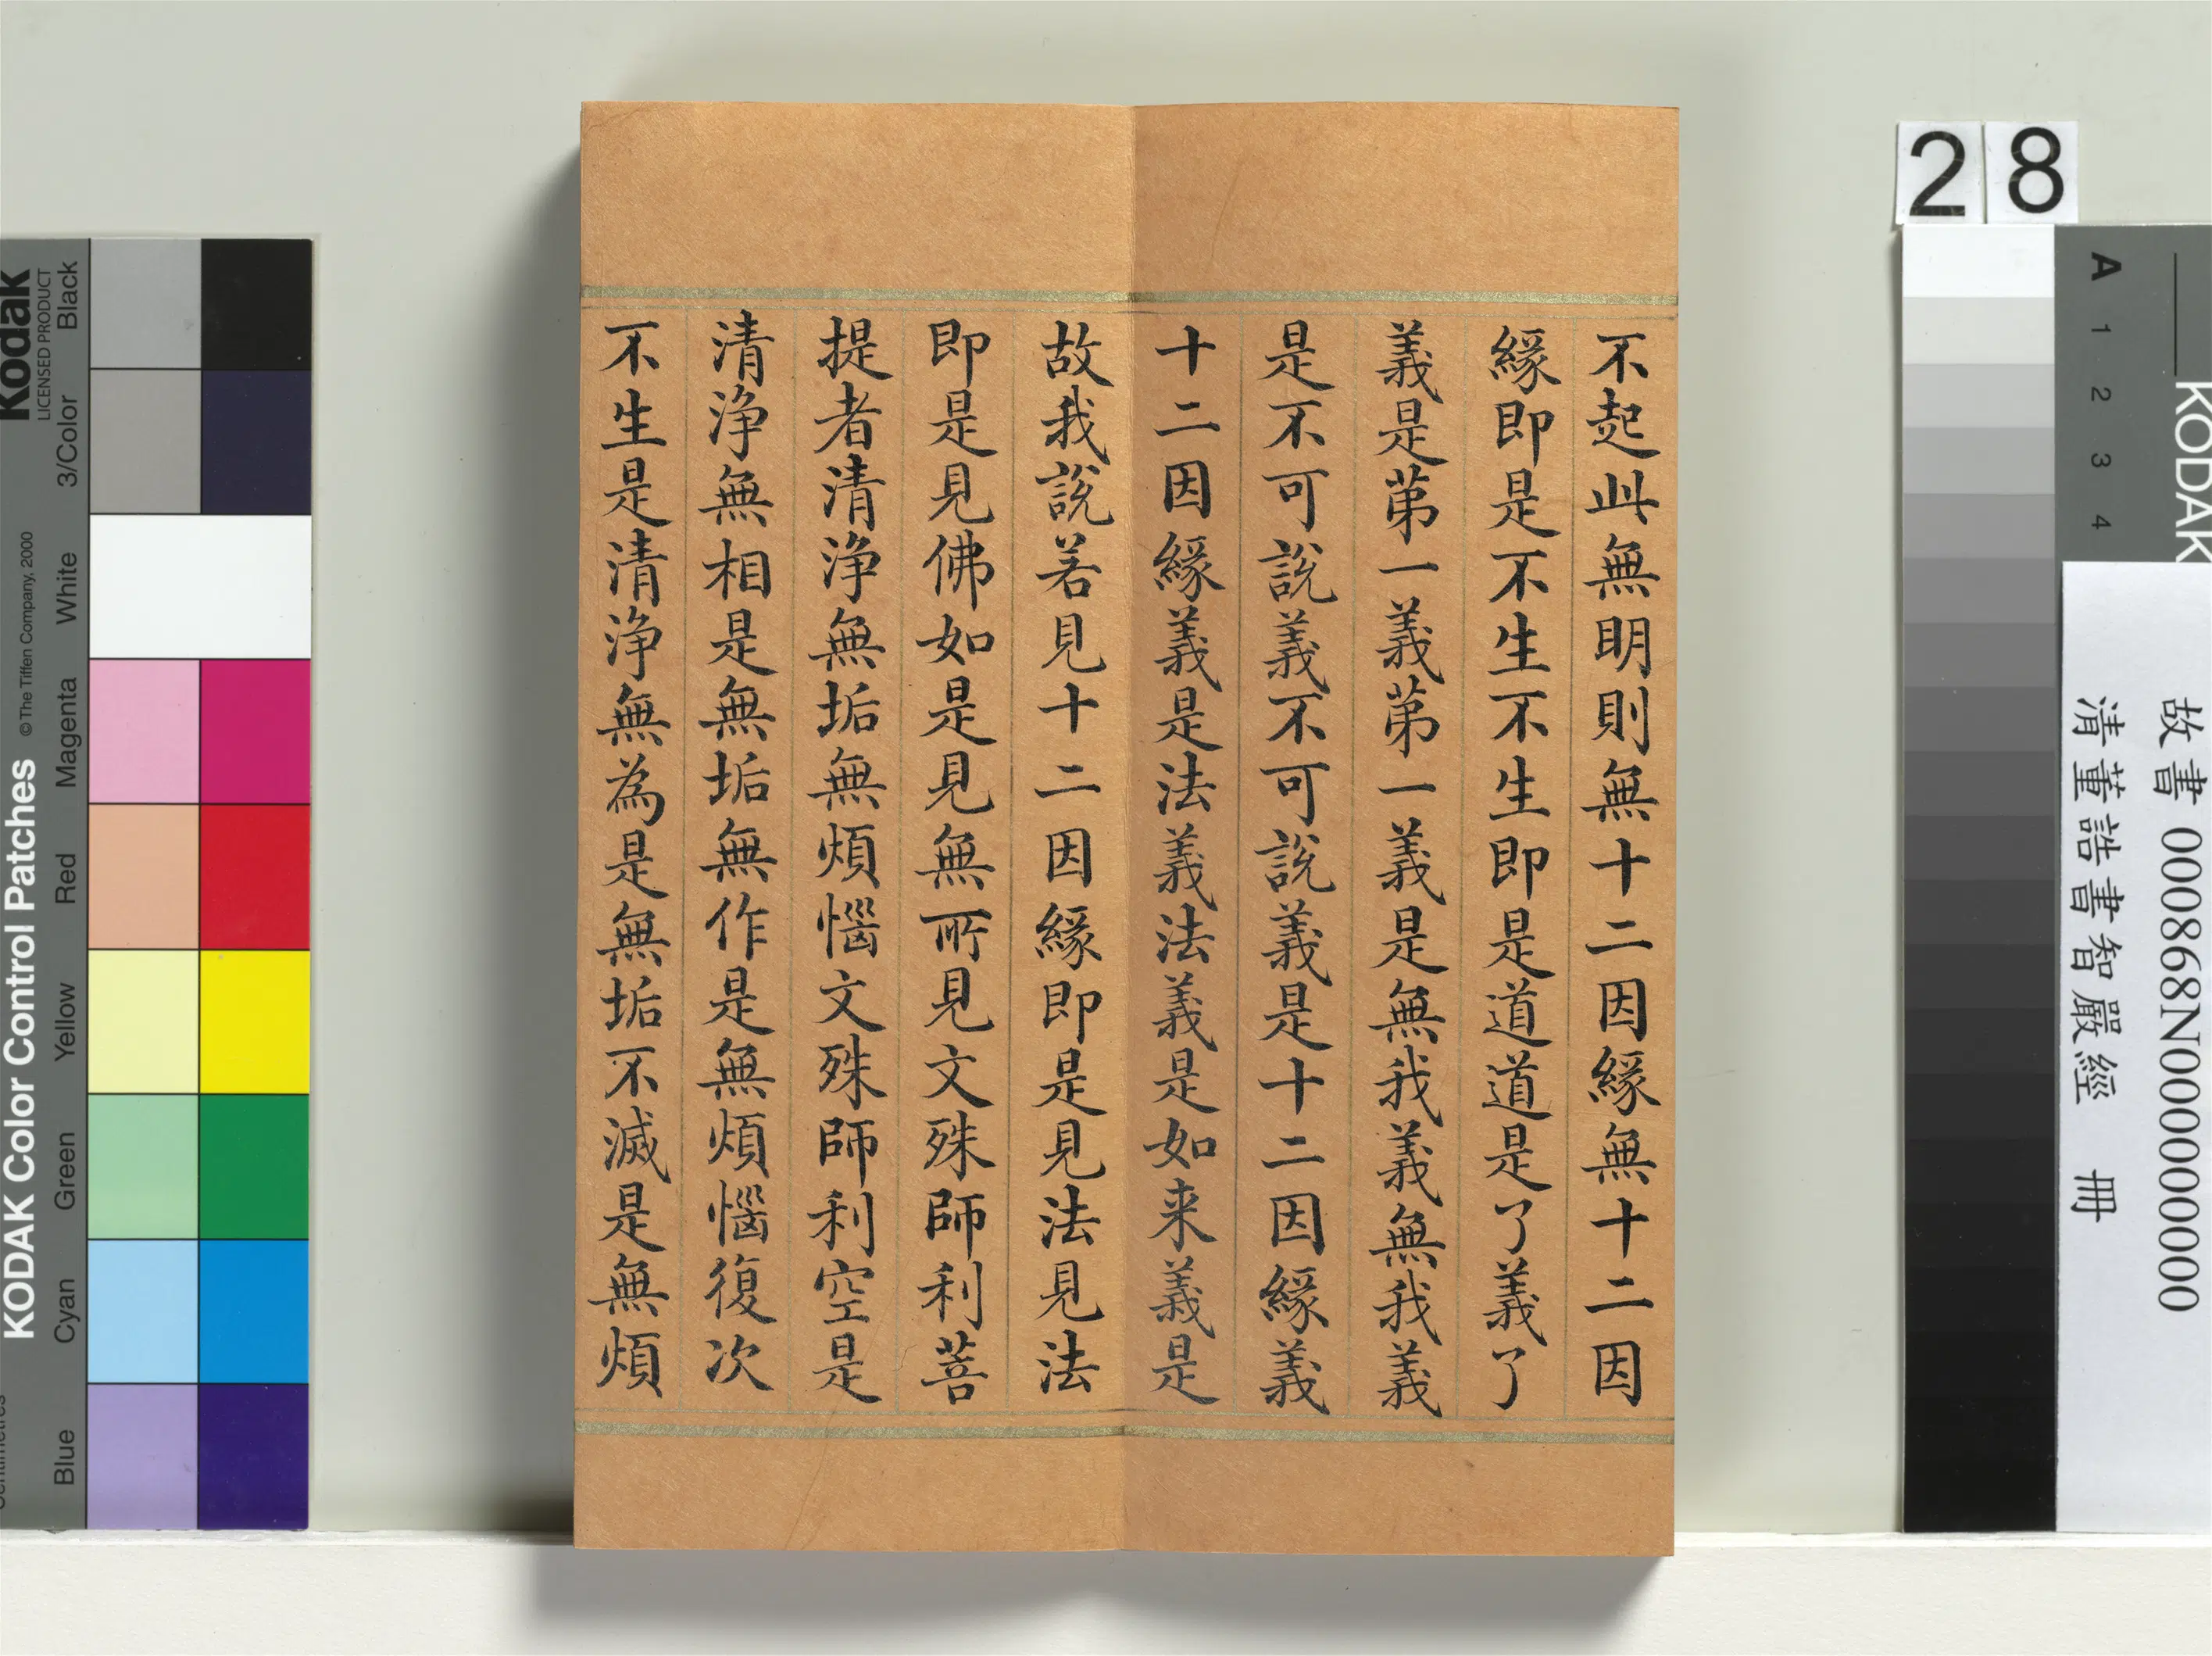 不起此無明則無十二因緣無十二因
緣即是不生不生即是道道是了義了
義是第一義第一義是無我義無我義
是不可說義不可說義是十二因緣義
十二因緣義是法義法義是如来義是
故我說若見十二因緣即是見法見法
即是見佛如是見無所見文殊師利菩
提者清浄無垢無煩惱文殊師利空是
清浄無相是無垢無作是無煩惱復次
不生是清浄無為是無垢不滅是無煩
28
Kodak
LICENSED PRODUCT
KODAK Color Control Patches
©The Tiffen Company, 2000
Black
3/Color
White
Magenta
Red
Yellow
Green
Cyan
Blue
KODAK
A 1 2 3 4
故書 000868N000000000
清董誥書智嚴經 冊